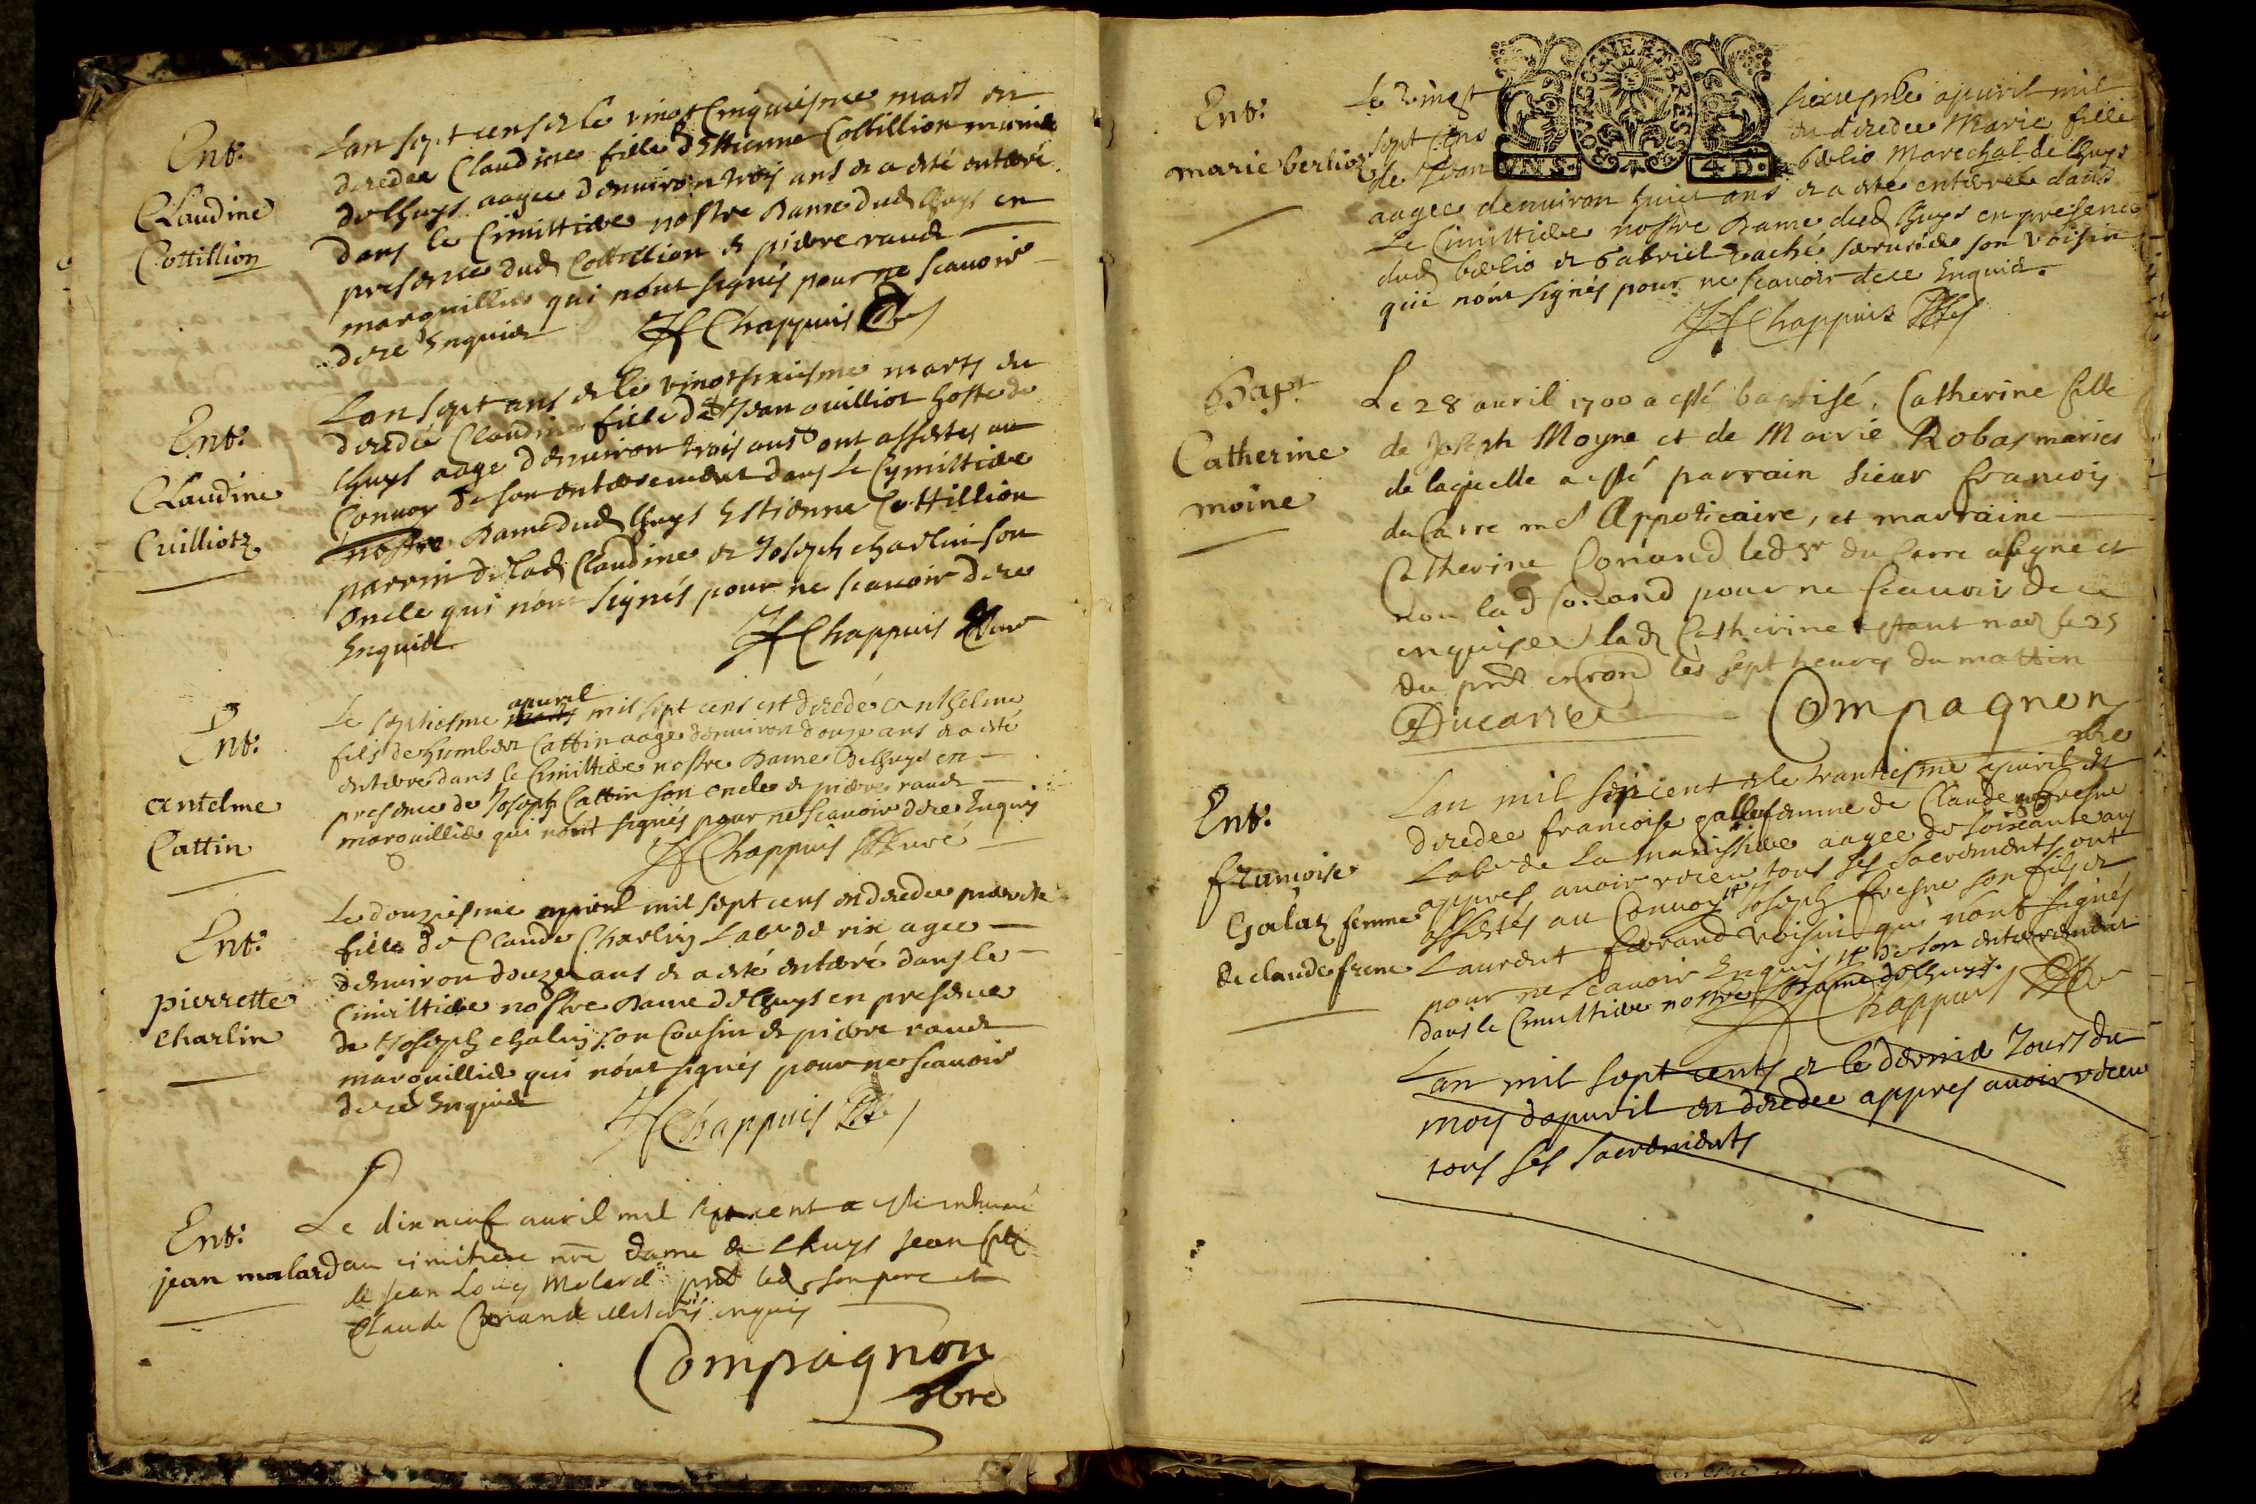 Ent.
Claudine
Cottillion
Lan sept cens & le vingt cinquiesme mars est
decedee Claudine fille d'Estienne Cottillion
de lhuys aagee denuiron trois ans & a esté enterré
dans le Cimittiere nostre Dame dud lhuys en
presence dud Cottillion & pierre raude
marguillier qui n'ont signés pour ne scauoir
de ce Enquis
Chappuis
Ent.
Claudine
Cuilliotz
Lan sept ans & le vingtsixiesme marts est
decedée Claudine fille de Jean Cuilliot hoste de
lhuys aage denuiron trois ans ont assistes au
Conuoy de son enterrement dans le Cymittiere
nostre Dame dud lhuys Estienne Cottillion
parrin de lad Claudine & Joseph charlin son
Oncle qui n'ont signés pour ne scauoir de ce
Enquis
Chappuis Curé
Ent.
antelme
Cattin
apuril
Le septiesme mil sept cens est decedé anthelme
fils de humber Cattin aage denuiron douze ans & a esté
enterré dans le Cimittiere nostre Dame de lhuys en
presence de Joseph Cattin son oncle & pierre raude
marguillier qui n'ont signés pour ne scauoir de ce Enquis
Chappuis Curé
Ent.
pierrette
charlin
Le douziesme apuril mil sept cens est decedee pierrette
fille de Claude Charlin Labr de rix agee
denuiron douze ans & a esté enterré dans le
Cimittiere nostre Dame de lhuys en presence
de Joseph chalin son Cousin & pierre raude
marguillier qui n'ont signés pour ne scauoir
de ce Enquis
Chappuis
Ent.
jean malard
Le dix neuf auril mil sept cent a esté inhumé
au cimitiere nre dame de Lhuys Jean fils
de Jean Louys Molard pnt led son pere et
Claude enquis
Compagnon
vbre
Ent.
marie berlioz
Le vingt sixiesme apuril mil
sept cens est decedee Marie fille
de Jean berlio Marechal de lhuys
aagee denuiron huict ans & a esté enterrée dans
Le Cimittiere nostre Dame dud lhuys en presence
dud berlio & Gabriel son voisin
qui n'ont signés pour ne scauoir de ce Enquis.
Chappuis
MOYS GENERALITE BRESSE
VNS. 4. D.
Bapt
Catherine
moine
Le 28 auril 1700 a esté baptisé, Catherine fille
de Joseph Moyne et de Marie Robas maries
de laquelle a esté parrain Sieur francois
du Carre md Appoticaire, et marraine
Catherine Conand led Sr du Carre a signe et
non lad Conand pour ne scauoir de ce
enquise lad Catherine estant nee le 25
du pnt enuiron les sept heures du mattin
Ducarre
Compagnon
vbre
Ent.
francoise
Galaz femme
de claude frene
Lan mil sept cent & le trantiesme apuril est
decedee francoise galle femme de Claude fresne
Labr de La aagee de soixante ans
appres auoir receu tous ses sacrements ont
assistés au Conuoy Joseph fresne son fils &
Laurent ferrand voisin qui n'ont signés
pour ne scauoir Enquis de son enterrement
dans le Cimittiere nostre Dame de lhuys.
Chappuis
Lan mil sept cents & le dernier Jours du
moys dapuril est decedee appres auoir receu
tous ses sacrements